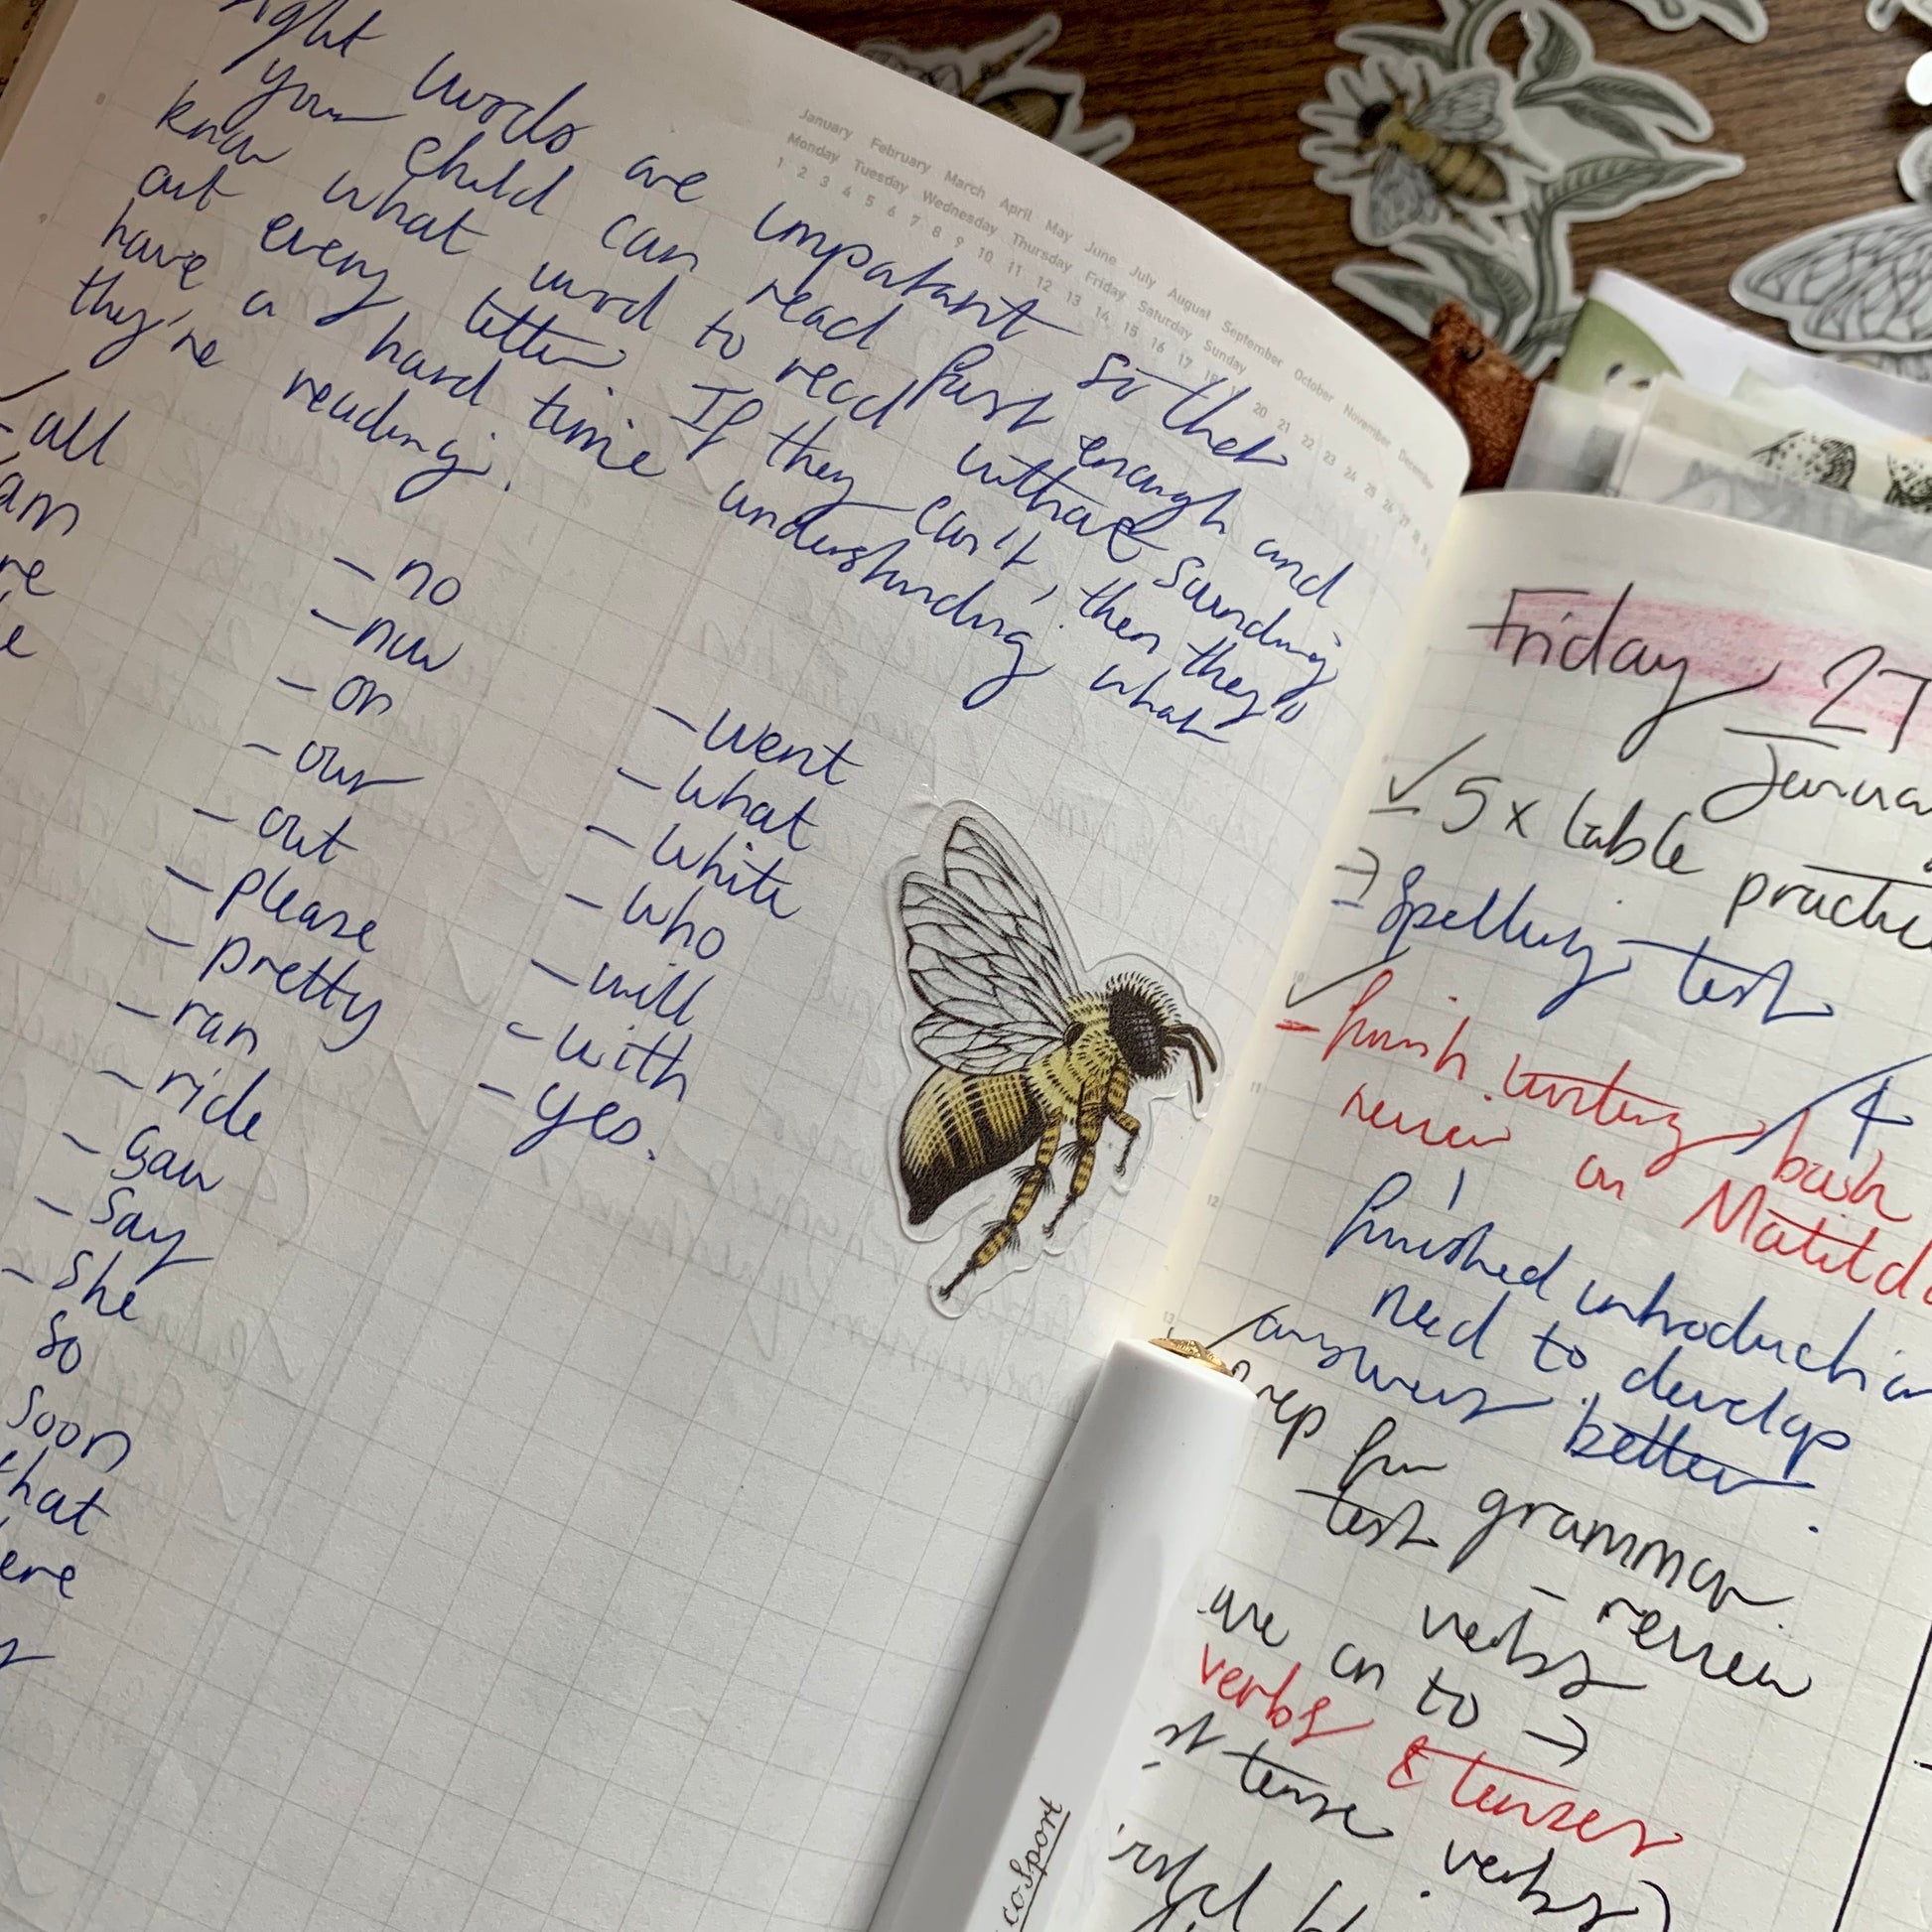 words are important so that
your child can read fast enough and
know what word to read without sounding
out every letter. If they can't, then they'll
have a hard time understanding what
they're reading.
- all
am
- no
- now
- on
- our
- out
- please
- pretty
- ran
- ride
- saw
- say
- she
so
soon
- went
- what
- white
- who
- will
- with
- yes.
January February March April May June July August September October November December
Monday Tuesday Wednesday Thursday Friday Saturday Sunday
1 2 3 4 5 6 7 8 9 10 11 12 13 14 15 16 17 18 19 20 21 22 23 24 25 26 27 28
Friday, 27
✓ 5x table
→ Spelling test
✓ - finish writing book
review on
finished
need to develop
answers better.
for grammar
test - review
verbs
on to →
verbs & tenses
tense verbs)
8
9
10
11
12
13